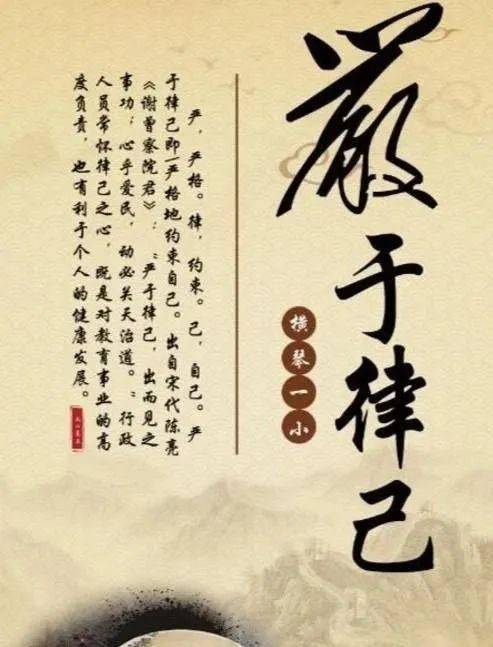 嚴于律己
横琴一小
严，严格。律，约束。己，自己。严
于律己即严格地约束自己。出自宋代陈亮
《谢曾察院君》：“严于律己，出而见之
事功；心乎爱民，动必关天治道。”行政
人员常怀律己之心，既是对教育事业的高
度负责，也有利于个人的健康发展。